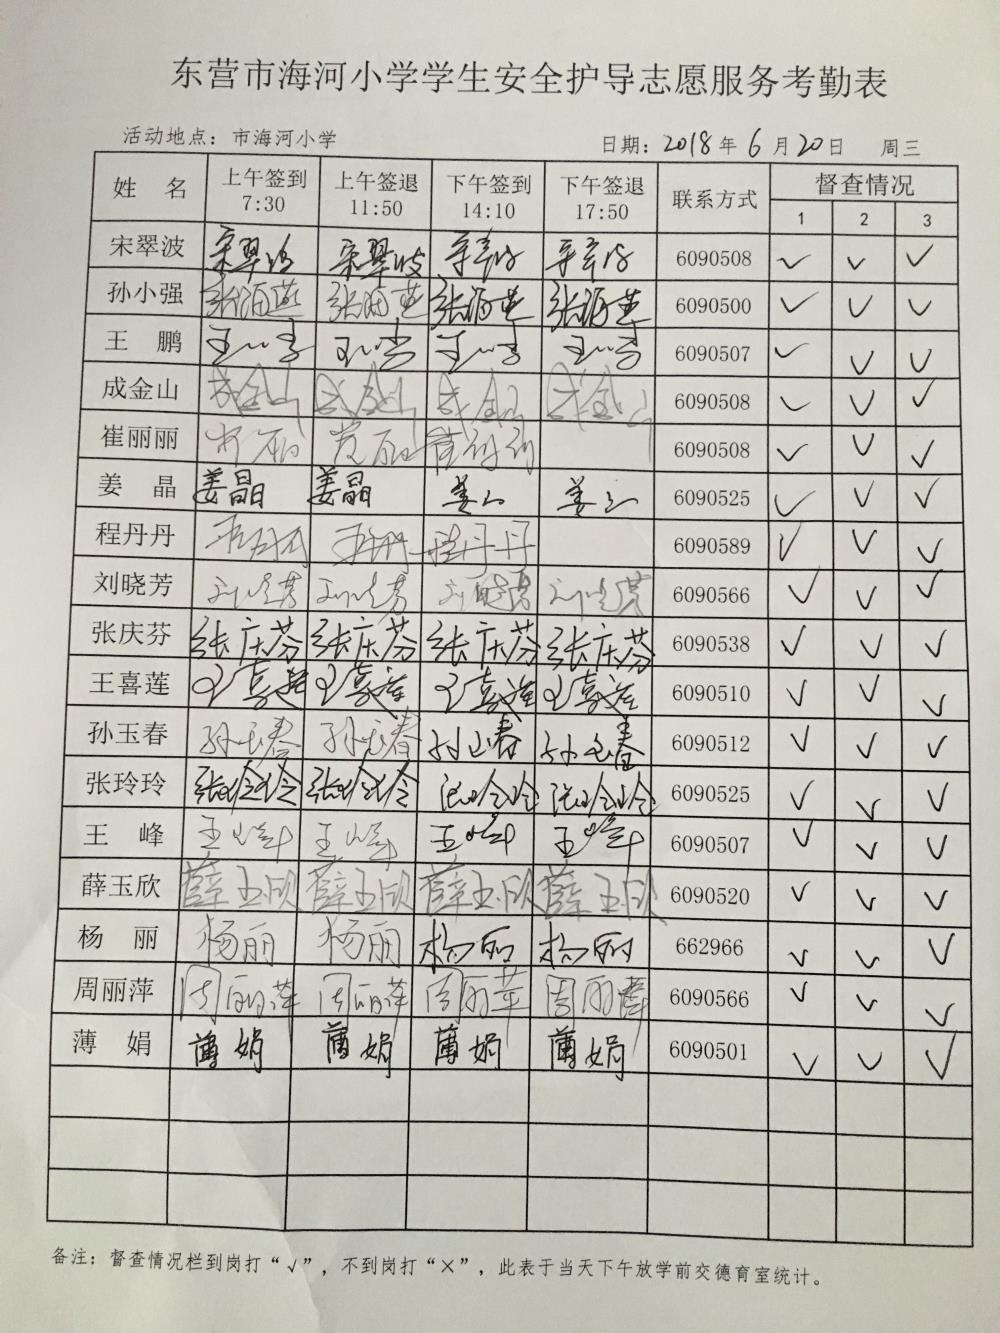 东营市海河小学学生安全护导志愿服务考勤表
活动地点：市海河小学 日期：2018年6月20日 周三
姓 名 上午签到 7:30 上午签退 11:50 下午签到 14:10 下午签退 17:50 联系方式 督查情况 1 2 3
宋翠波 宋翠波 宋翠波 6090508 ✓ ✓ ✓
孙小强 张酒燕 6090500 ✓ ✓ ✓
王 鹏 6090507 ✓ ✓ ✓
成金山 成金山 成金山 成金山 成金山 6090508 ✓ ✓ ✓
崔丽丽 6090508 ✓ ✓ ✓
姜 晶 姜晶 姜晶 6090525 ✓ ✓ ✓
程丹丹 程丹丹 6090589 ✓ ✓ ✓
刘晓芳 刘晓芳 刘晓芳 刘晓芳 刘晓芳 6090566 ✓ ✓ ✓
张庆芬 张庆芬 张庆芬 张庆芬 张庆芬 6090538 ✓ ✓ ✓
王喜莲 王喜莲 王喜莲 王喜莲 王喜莲 6090510 ✓ ✓ ✓
孙玉春 孙玉春 孙玉春 孙玉春 孙玉春 6090512 ✓ ✓ ✓
张玲玲 张玲玲 张玲玲 张玲玲 张玲玲 6090525 ✓ ✓ ✓
王 峰 王峰 王峰 王峰 王峰 6090507 ✓ ✓ ✓
薛玉欣 薛玉欣 薛玉欣 薛玉欣 薛玉欣 6090520 ✓ ✓ ✓
杨 丽 杨丽 杨丽 杨丽 杨丽 662966 ✓ ✓ ✓
周丽萍 周丽萍 周丽萍 周丽萍 周丽萍 6090566 ✓ ✓ ✓
薄 娟 薄娟 薄娟 薄娟 薄娟 6090501 ✓ ✓ ✓
备注：督查情况栏到岗打“√”，不到岗打“×”，此表于当天下午放学前交德育室统计。